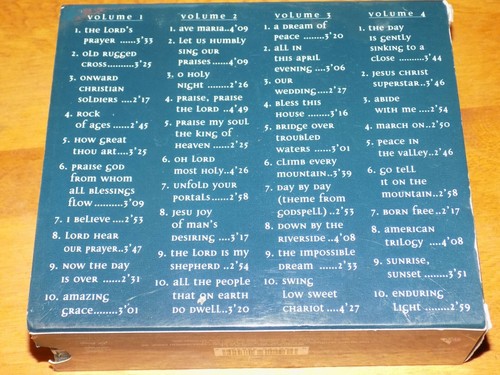 VOLUME 1
1. THE LORD'S
PRAYER .....3'33
2. OLD RUGGED
CROSS..........3'25
3. ONWARD
CHRISTIAN
SOLDIERS ....2'17
4. ROCK
OF AGES ......2'45
5. HOW GREAT
THOU ART....3'25
6. PRAISE GOD
FROM WHOM
ALL BLESSINGS
FLOW ...........3'09
7. I BELIEVE ....2'53
8. LORD HEAR
OUR PRAYER..3'47
9. NOW THE DAY
IS OVER ......2'51
10. AMAZING
GRACE........3'01
VOLUME 2
1. AVE MARIA..4'09
2. LET US HUMBLY
SING OUR
PRAISES ......4'09
3. O HOLY
NIGHT ........2'26
4. PRAISE, PRAISE
THE LORD ..4'49
5. PRAISE MY SOUL
THE KING OF
HEAVEN ......2'25
6. OH LORD
MOST HOLY..4'26
7. UNFOLD YOUR
PORTALS......2'58
8. JESU JOY
OF MAN'S
DESIRING ....3'17
9. THE LORD IS MY
SHEPHERD ..2'54
10. ALL THE PEOPLE
THAT ON EARTH
DO DWELL..3'20
VOLUME 3
1. A DREAM OF
PEACE ........3'20
2. ALL IN
THIS APRIL
EVENING ....3'06
3. OUR
WEDDING....2'27
4. BLESS THIS
HOUSE ........3'16
5. BRIDGE OVER
TROUBLED
WATERS ......3'01
6. CLIMB EVERY
MOUNTAIN..3'39
7. DAY BY DAY
(THEME FROM
GODSPELL) ..2'53
8. DOWN BY THE
RIVERSIDE ..4'08
9. THE IMPOSSIBLE
DREAM ......2'33
10. SWING
LOW SWEET
CHARIOT ....4'27
VOLUME 4
1. THE DAY
IS GENTLY
SINKING TO A
CLOSE ........3'44
2. JESUS CHRIST
SUPERSTAR..3'46
3. ABIDE
WITH ME ....2'54
4. MARCH ON..2'50
5. PEACE IN
THE VALLEY..2'46
6. GO TELL
IT ON THE
MOUNTAIN..2'58
7. BORN FREE..2'17
8. AMERICAN
TRILOGY ....4'08
9. SUNRISE,
SUNSET ........3'51
10. ENDURING
LIGHT ........2'59